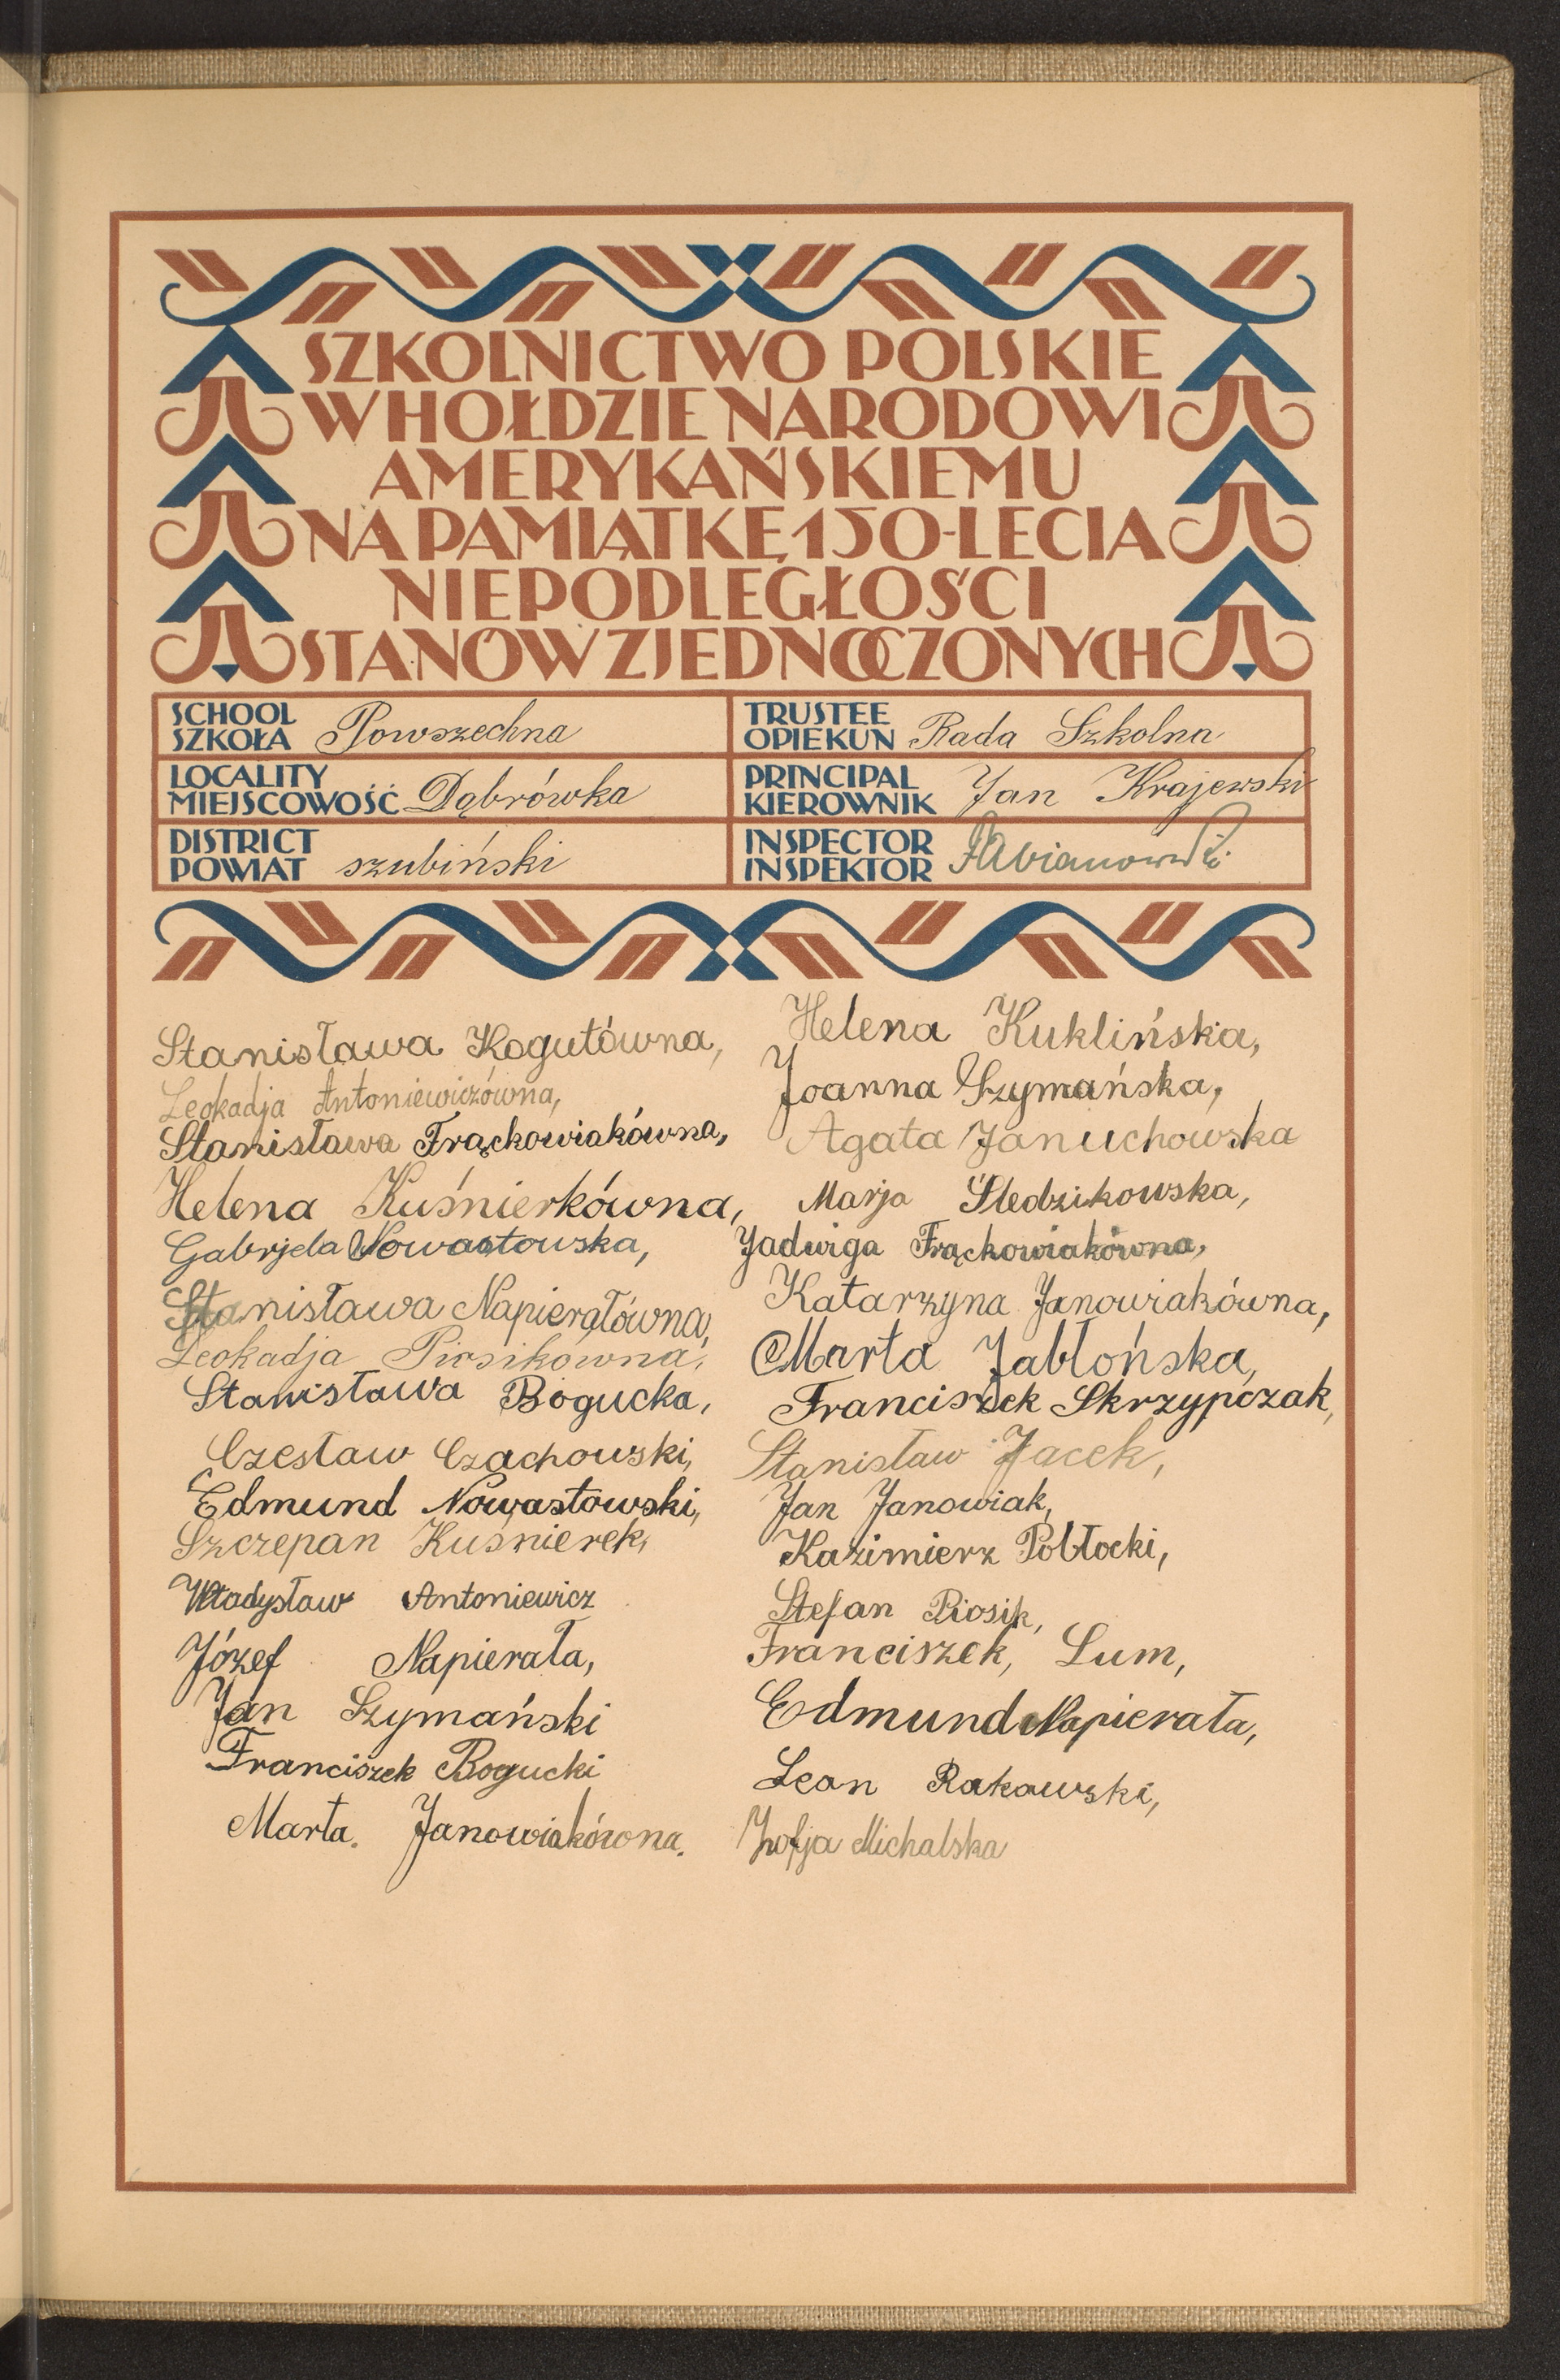 SZKOLNICTWO POLSKIE
W HOŁDZIE NARODOWI
AMERYKAŃSKIEMU
NA PAMIĄTKĘ 150-LECIA
NIEPODLEGŁOŚCI
STANÓW ZJEDNOCZONYCH
SCHOOL
SZKOŁA Powszechna
TRUSTEE
OPIEKUN Rada Szkolna
LOCALITY
MIEJSCOWOŚĆ Dąbrówka
PRINCIPAL
KIEROWNIK Jan Krajewski
DISTRICT
POWIAT szubiński
INSPECTOR
INSPEKTOR
Stanisława Kogutówna,
Leokadja Antoniewiczówna,
Stanisława Frąckowiakówna,
Helena Kuśnierkówna,
Gabrjela Nowastowska,
Stanisława Napierałówna,
Leokadja Piosikówna,
Stanisława Bogucka,
Czesław Czachowski,
Edmund Nowastowski,
Szczepan Kuśnierek,
Władysław Antoniewicz
Józef Napierała,
Jan Szymański
Franciszek Bogucki
Marta. Janowiakówna.
Helena Kuklińska,
Joanna Szymańska,
Agata Januchowska
Marja Śledzikowska,
Jadwiga Frąckowiakówna,
Katarzyna Janowiakówna,
Marta Jabłońska,
Franciszek Skrzypczak,
Stanisław Jacek,
Jan Janowiak,
Kazimierz Pobłocki,
Stefan Piosik,
Franciszek, Lum,
Edmund Napierała,
Leon Rakowski,
Zofja Michalska